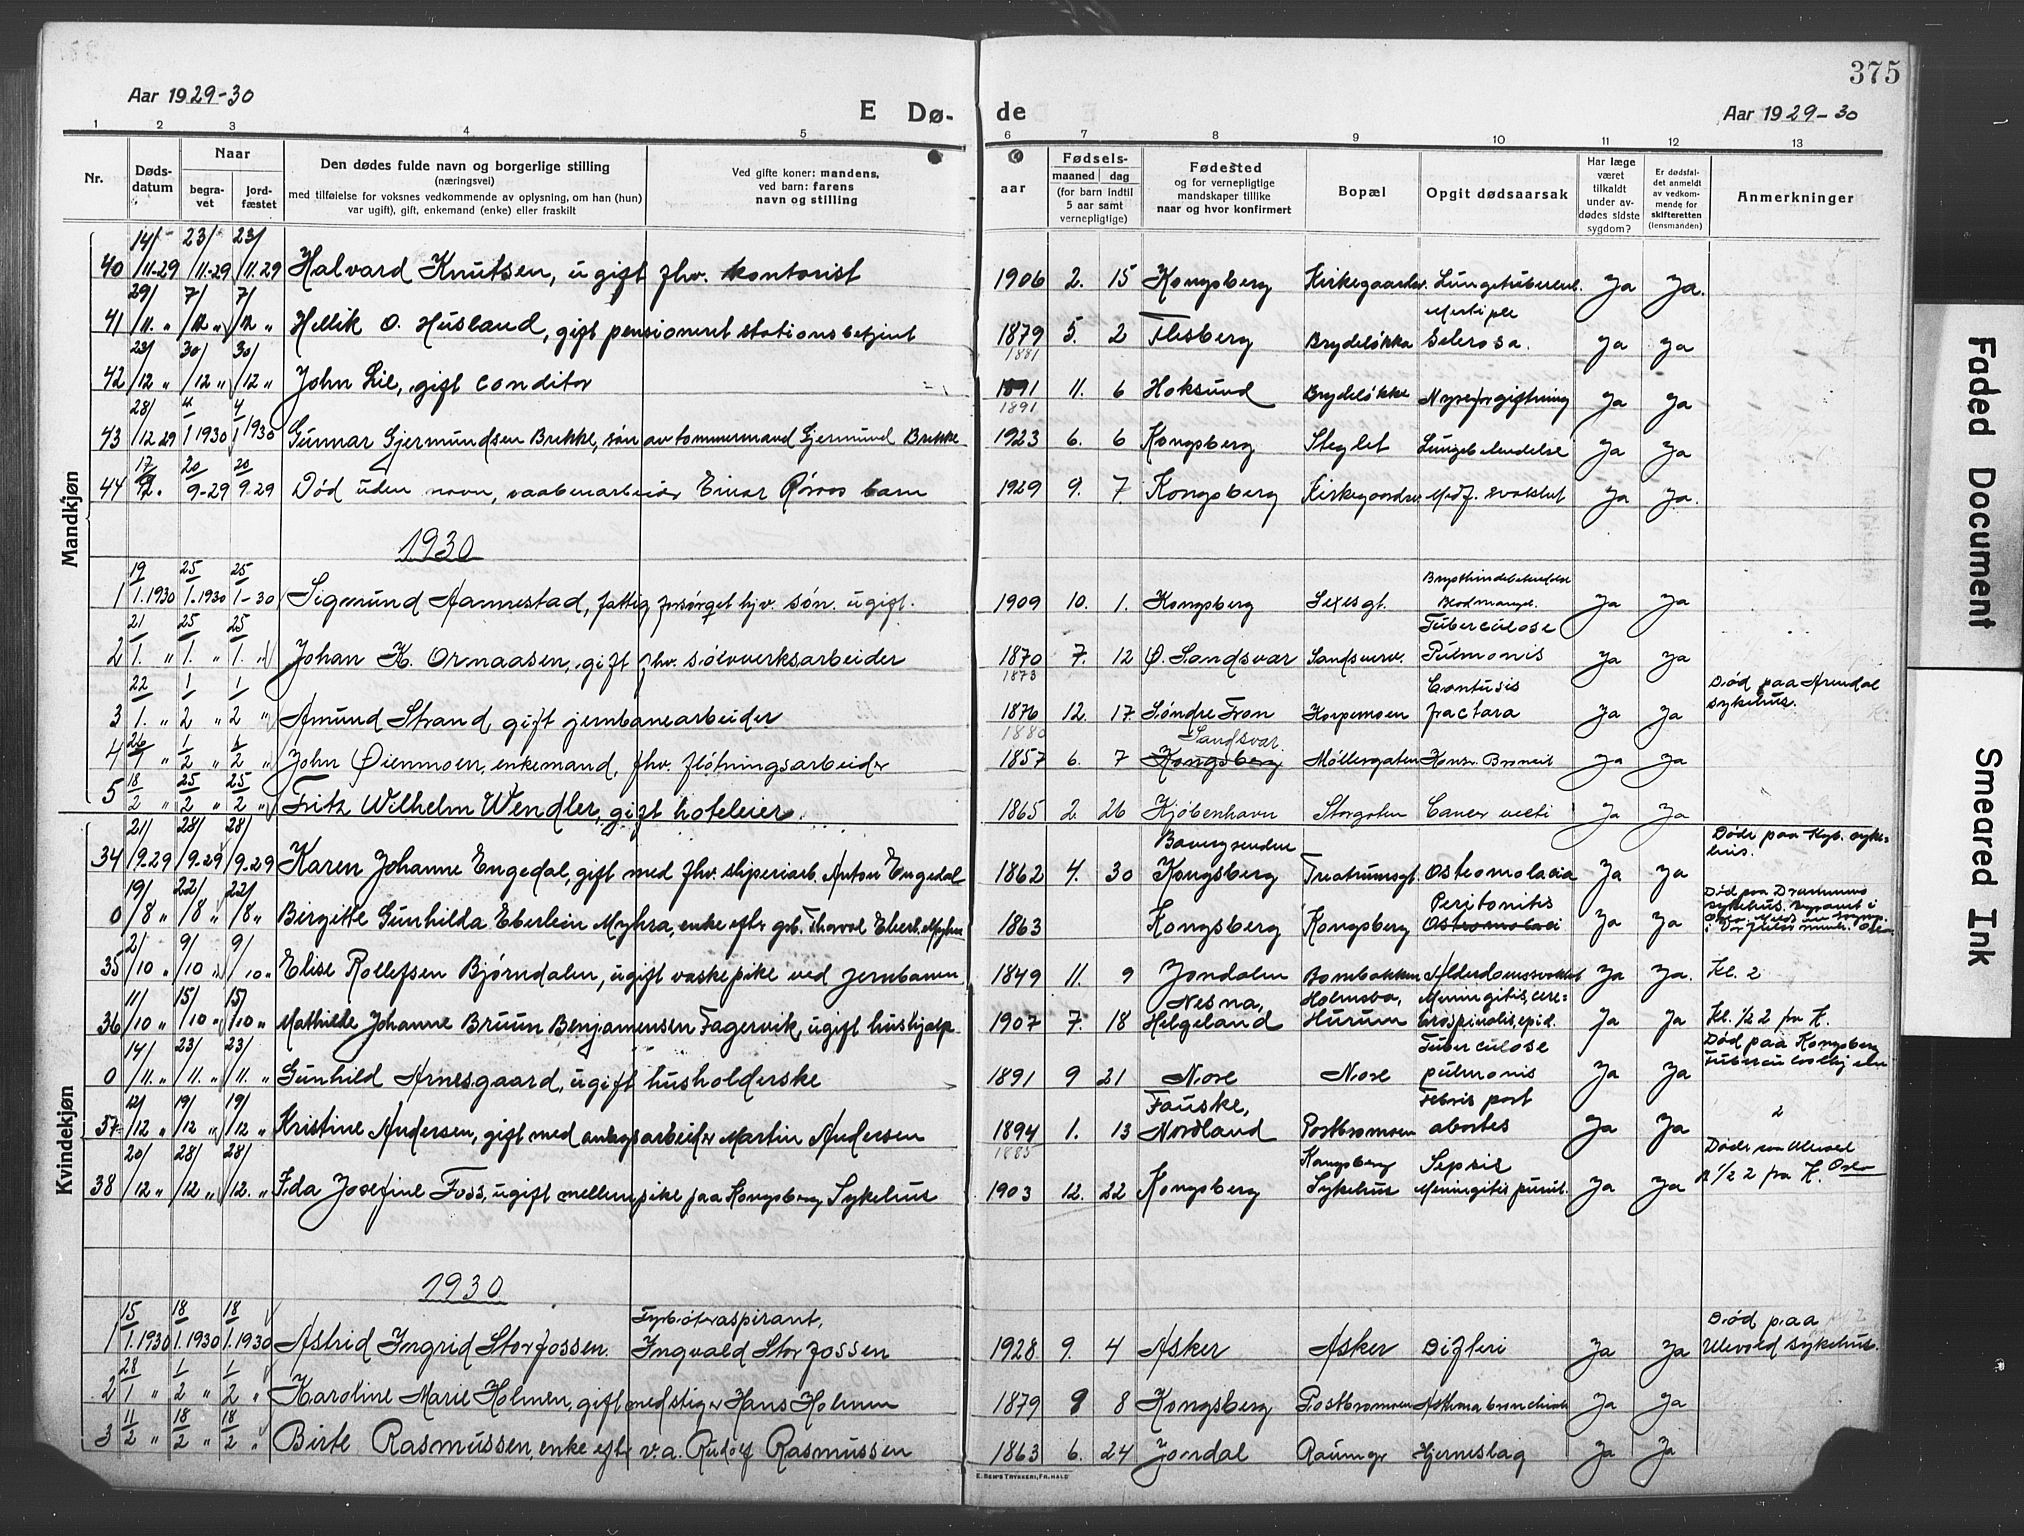 375
Aar 1929-30
E Dø-
de
Aar 1929-30
1 2 3 4 5 6 7 8 9 10 11 12 13
Nr.
Døds-
datum
Naar
begra-
vet
jord-
fæstet
Den dødes fulde navn og borgerlige stilling
(næringsvei)
med tilføielse for voksnes vedkommende av oplysning, om han (hun)
var ugift), gift, enkemand (enke) eller fraskilt
Ved gifte koner: mandens,
ved barn: farens
navn og stilling
aar
Fødsels-
maaned dag
(for barn indtil
5 aar samt
vernepligtige)
Fødested
og for vernepligtige
mandskaper tillike
naar og hvor konfirmert
Bopæl
Opgit dødsaarsak
Har læge
været
tilkaldt
under av-
dødes sidste
sygdom?
Er dødsfal-
det anmeldt
av vedkom-
mende for
skifteretten
(lensmanden)
Anmerkninger
Mandkjøn
40 14/11-29 23/11-29 23/11.29 Halvard Knutsen, ugift fhv. kontorist 1906 2. 15 Kongsberg Lungetubercul. Ja Ja.
41 29/11. " 7/12 " 7/12 " Hellik O. Husland, gift pensionert stationsbetjent 1879 5. 2 Flesberg Brydeløkka Multiple Sclerosa. Ja Ja
1881
42 23/12 " 30/12 " 30/12 " John Lie, gift conditor 1891 11. 6 Hoksund Brydeløkke Nyreforgiftning Ja Ja
1891
43 28/12 29 4/1 1930 4/1 1930 Gunnar Gjermundsen Brekke, søn av tømmermand Gjermund Brekke 1923 6. 6 Kongsberg Steglet Lungebetendelse Ja Ja
44 20/9-29 20/9.29 Død uden navn, vaabenarbeider Einar Røvos barn 1929 9. 7 Kongsberg Medf. svakhet Ja Ja.
1930
1 19/1.1930 25/1.1930 25/1-30 Sigmund Aamestad, fattig forsørget hjv. søn. ugift. 1909 10. 1. Kongsberg Brysthindebetendelse Blodmangel. Ja Ja
2 21/1. " 25/1. " 25/1. " Johan K. Ornaasen, gift fhv. sølvverksarbeider 1870 7. 12 Ø. Sandsvær Sandsverv. Tuberculose Pulmonis Ja Ja
1873
3 22/1. " 1/2 " 1/2 " Amund Strand, gift jernbanearbeider 1876 12. 17. Søndre Fron Korpemoen Contusis fractara Ja Ja Død paa Arendal sykehus.
1880
4 26/1 " 1/2 " 1/2 " John Øienmoen, enkemand, fhv. fløtningsarbeider 1857 6. 7 Sandsvær. Kongsberg Møllergaten Ja Ja
5 18/2 " 25/2 " 25/2 " Fritz Wilhelm Wendler, gift hoteleier. 1865 2. 26 Kjøbenhavn Storgaten Cancer Ja Ja
Kvindekjøn
34 21/9-29 28/9.29 28/9.29 Karen Johanne Engedal, gift med fhv. sliperiarb. Anton Engedal 1862 4. 30 Kongsberg Osteomolacia Ja Ja Døde paa Kgb. sykehus.
0 19/8 " 22/8 " 22/8 " Birgitte Gunhilda Eberlein Myhra, enke efter 1863 Kongsberg Kongsberg Peritonitis Osteomolaci Ja Ja Død paa Drammens sykehus.
35 2/10 " 9/10 " 9/10 " Elise Rollefsen Bjørndalen, ugift vaskepike ved jernbanen 1849 11. 9 Jondalen Bombakken Alderdomssvakhet Ja Ja. Kl. 2
36 11/10 " 15/10 " 15/10 " Mathilde Johanne Bruun Benjamensen Fagervik, ugift hushjælp 1907 7. 18 Nesna, Helgeland Holmsbo, Hurum Meningitis, cerebrospinalis, epid. Ja Ja Kl. 1/2 2 fra K.
0 14/11. " 23/11. " 23/11. " Gunhild Arnesgaard, ugift husholderske 1891 9 21 Nore Nore Tuberculose pulmonis Ja Ja Død paa Kongsberg
37 12/12 " 19/12 " 19/12 " Kristine Andersen, gift med anlegsarbeider Martin Andersen 1894 1. 13 Fauske, Nordland Postbromoen Febris post abortes Ja Ja 2
1885
38 20/12 " 28/12 " 28/12. " Ida Josefine Foss, ugift mellempike paa Kongsberg Sykehus 1903 12. 22 Kongsberg Kongsberg Sykehus Sepsis Meningitis purul. Ja Ja 1/2 2 fra K. Oslo
1930
1 15/1.1930 18/1.1930 18/1.1930 Astrid Ingrid Storfossen. Fyrbøteraspirant, Ingvald Storfossen 1928 9. 4 Asker Asker Difteri Ja Ja Død paa Ulevold sykehus.
2 28/1 " 1/2 " 1/2 " Karoline Marie Holmen, gift med stiger Hans Holmen 1879 9 8 Kongsberg Postbromoen Ja Ja
3 11/2 " 18/2 " 18/2 " Birte Rasmussen, enke efter v.a. Rudolf Rasmussen 1863 6. 24 Jondal Raumgr Hjerneslag Ja Ja
E. SEM'S TRYKKERI, FR.HALD
Faded Document
Smeared Ink